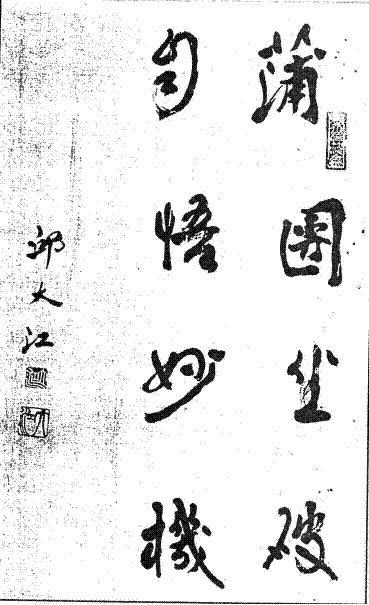 蒲團坐破
自悟妙機
邱大江